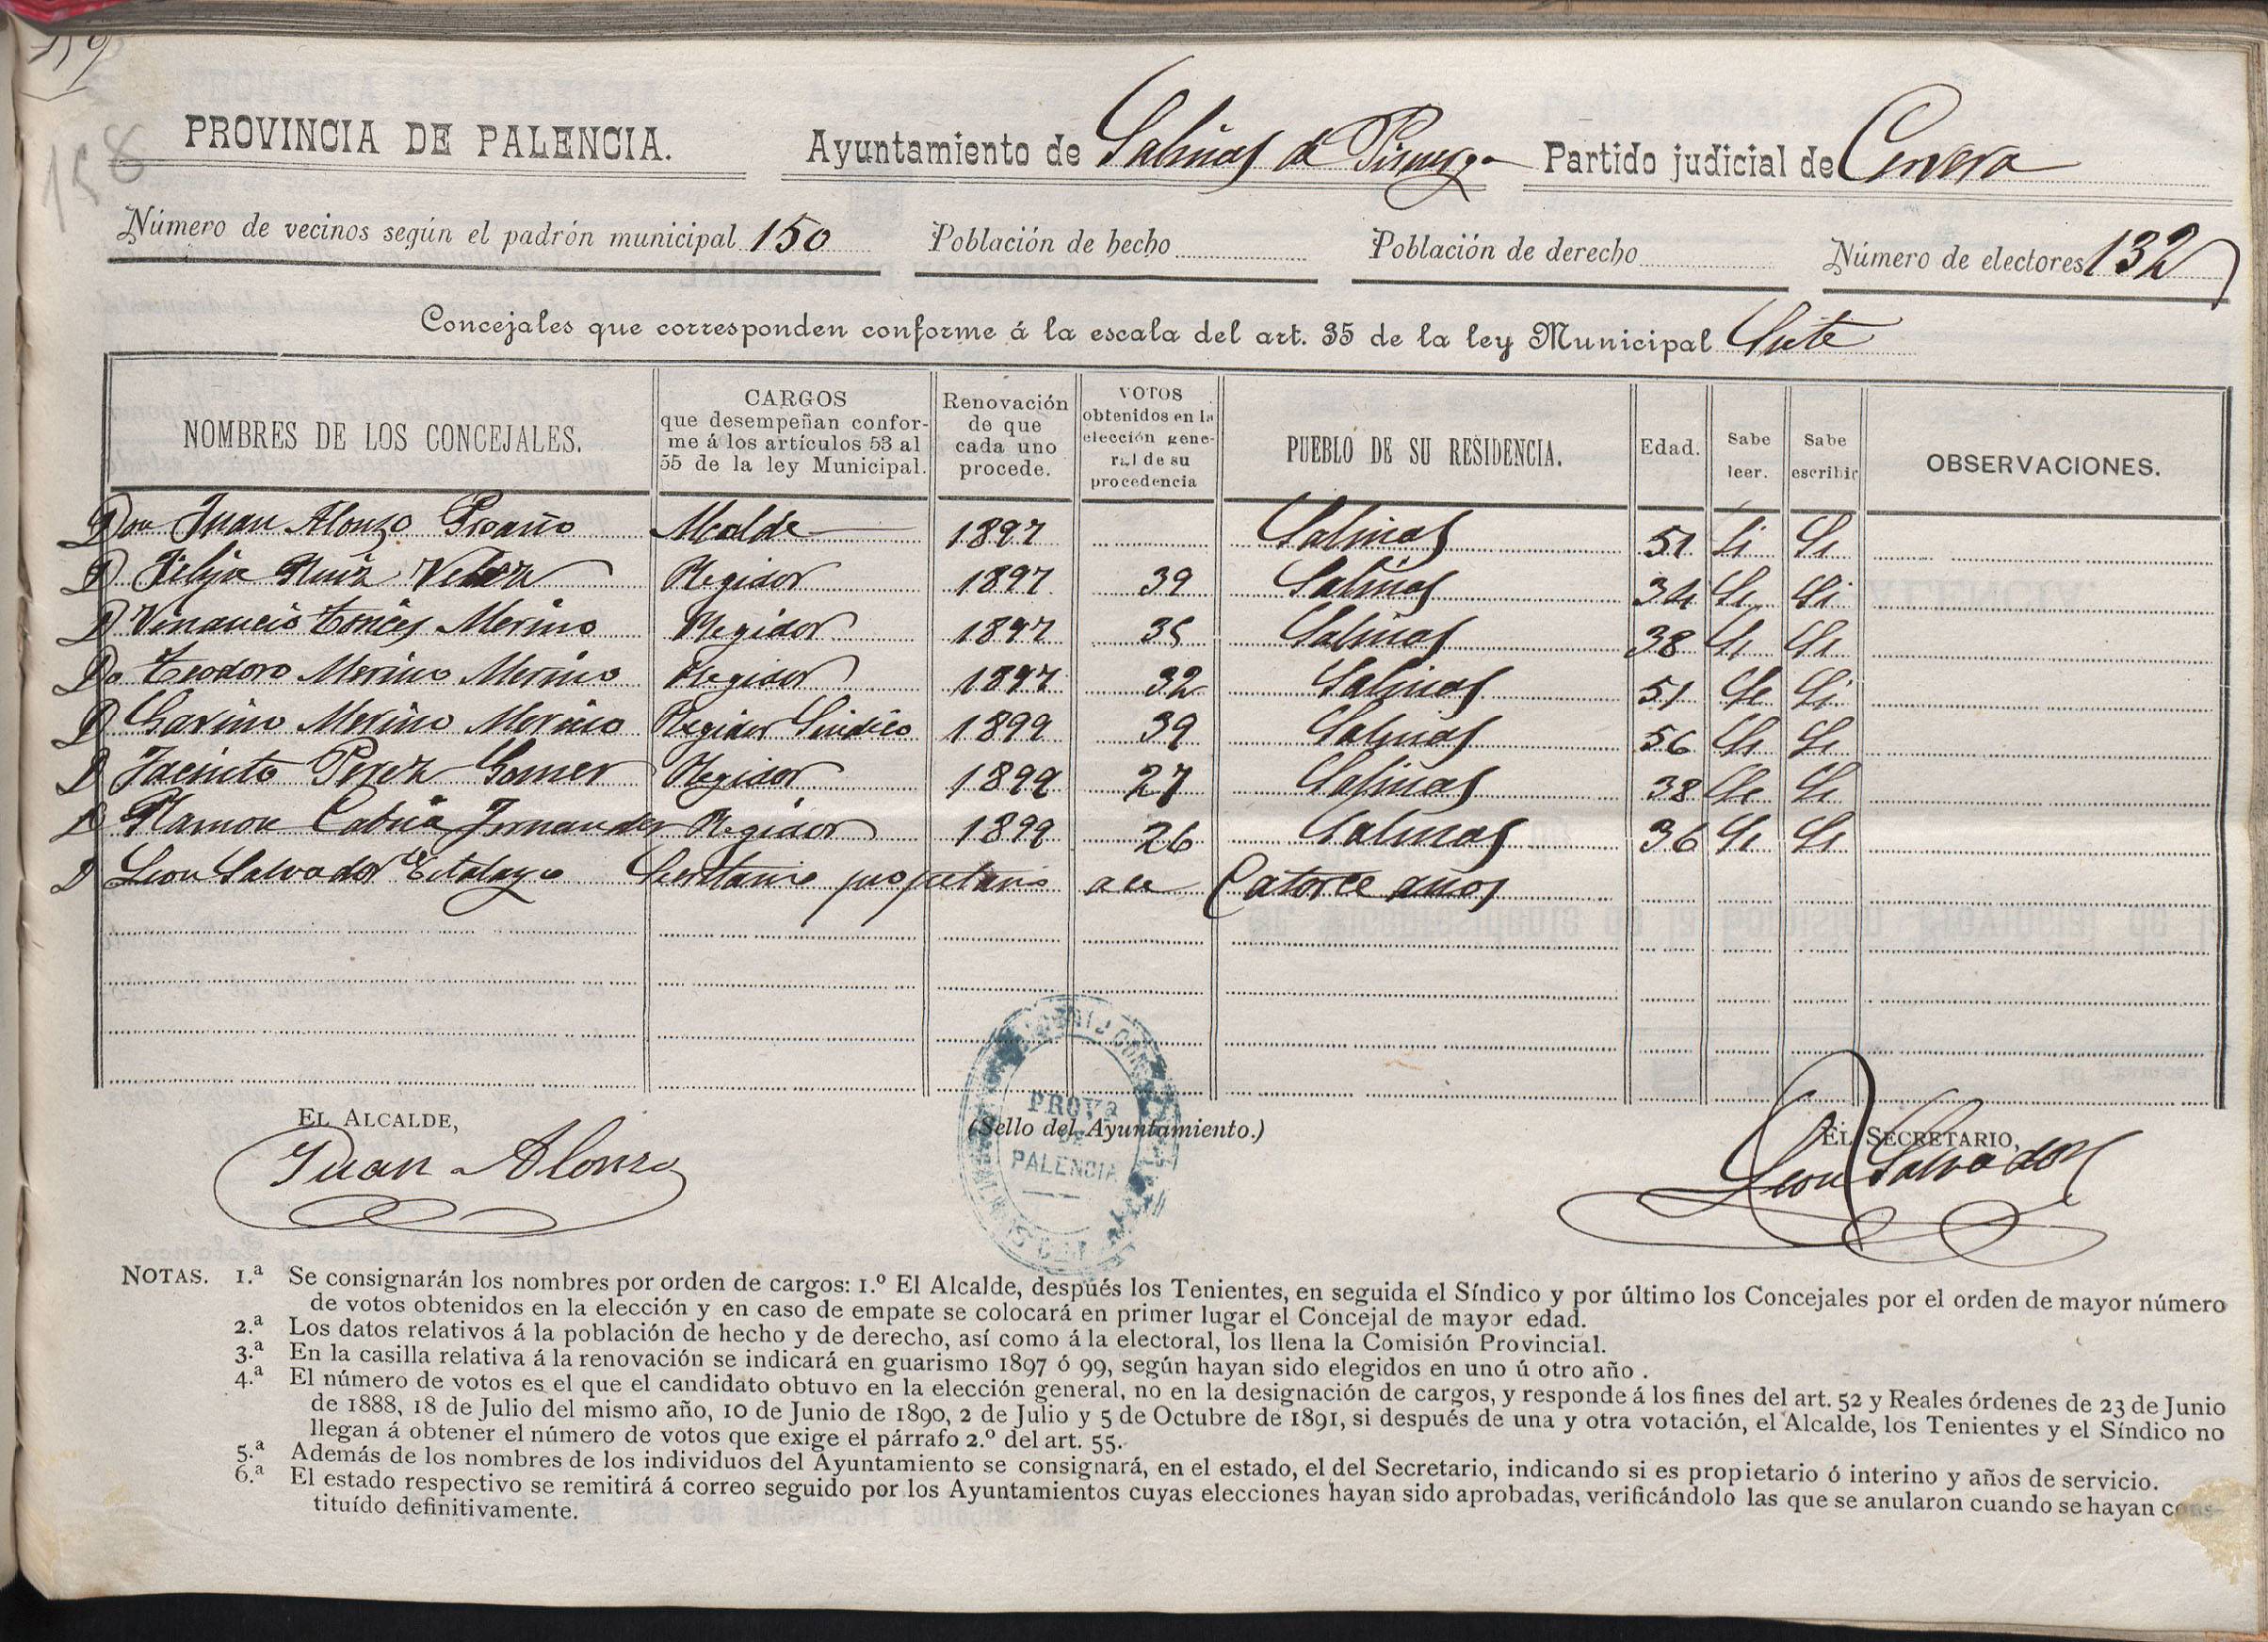 159
158
PROVINCIA DE PALENCIA. Ayuntamiento de Salinas de Pisuerga Partido judicial de Cervera
Número de vecinos según el padrón municipal 150 Población de hecho Población de derecho Número de electores 132
Concejales que corresponden conforme á la escala del art. 35 de la ley Municipal Siete
NOMBRES DE LOS CONCEJALES. CARGOS que desempeñan conforme á los artículos 53 al 55 de la ley Municipal. Renovación de que cada uno procede. VOTOS obtenidos en la elección general de su procedencia PUEBLO DE SU RESIDENCIA. Edad. Sabe leer. Sabe escribir OBSERVACIONES.
Don Juan Alonzo Proaño Alcalde 1897 Salinas 51 Si Si
D Felipe Ruiz Velez Regidor 1897 39 Salinas 34 Si Si
D Venancio Torices Merino Regidor 1897 35 Salinas 38 Si Si
Dn Teodoro Merino Merino Regidor 1897 32 Salinas 51 Si Si
D Gavino Merino Merino Regidor Sindico 1899 39 Salinas 56 Si Si
D Jacinto Perez Gomez Regidor 1899 27 Salinas 38 Si Si
D Ramon Cabria Fernandez Regidor 1899 26 Salinas 36 Si Si
D Leon Salvador Secretario propetario ace Catorce años
EL ALCALDE, (Sello del Ayuntamiento.) EL SECRETARIO,
Juan Alonzo Leon Salvador
PROVa DE PALENCIA
NOTAS. 1.ª Se consignarán los nombres por orden de cargos: 1.º El Alcalde, después los Tenientes, en seguida el Síndico y por último los Concejales por el orden de mayor número
de votos obtenidos en la elección y en caso de empate se colocará en primer lugar el Concejal de mayor edad.
2.ª Los datos relativos á la población de hecho y de derecho, así como á la electoral, los llena la Comisión Provincial.
3.ª En la casilla relativa á la renovación se indicará en guarismo 1897 ó 99, según hayan sido elegidos en uno ú otro año .
4.ª El número de votos es el que el candidato obtuvo en la elección general, no en la designación de cargos, y responde á los fines del art. 52 y Reales órdenes de 23 de Junio
de 1888, 18 de Julio del mismo año, 10 de Junio de 1890, 2 de Julio y 5 de Octubre de 1891, si después de una y otra votación, el Alcalde, los Tenientes y el Síndico no
llegan á obtener el número de votos que exige el párrafo 2.º del art. 55.
5.ª Además de los nombres de los individuos del Ayuntamiento se consignará, en el estado, el del Secretario, indicando si es propietario ó interino y años de servicio.
6.ª El estado respectivo se remitirá á correo seguido por los Ayuntamientos cuyas elecciones hayan sido aprobadas, verificándolo las que se anularon cuando se hayan cons-
tituído definitivamente.